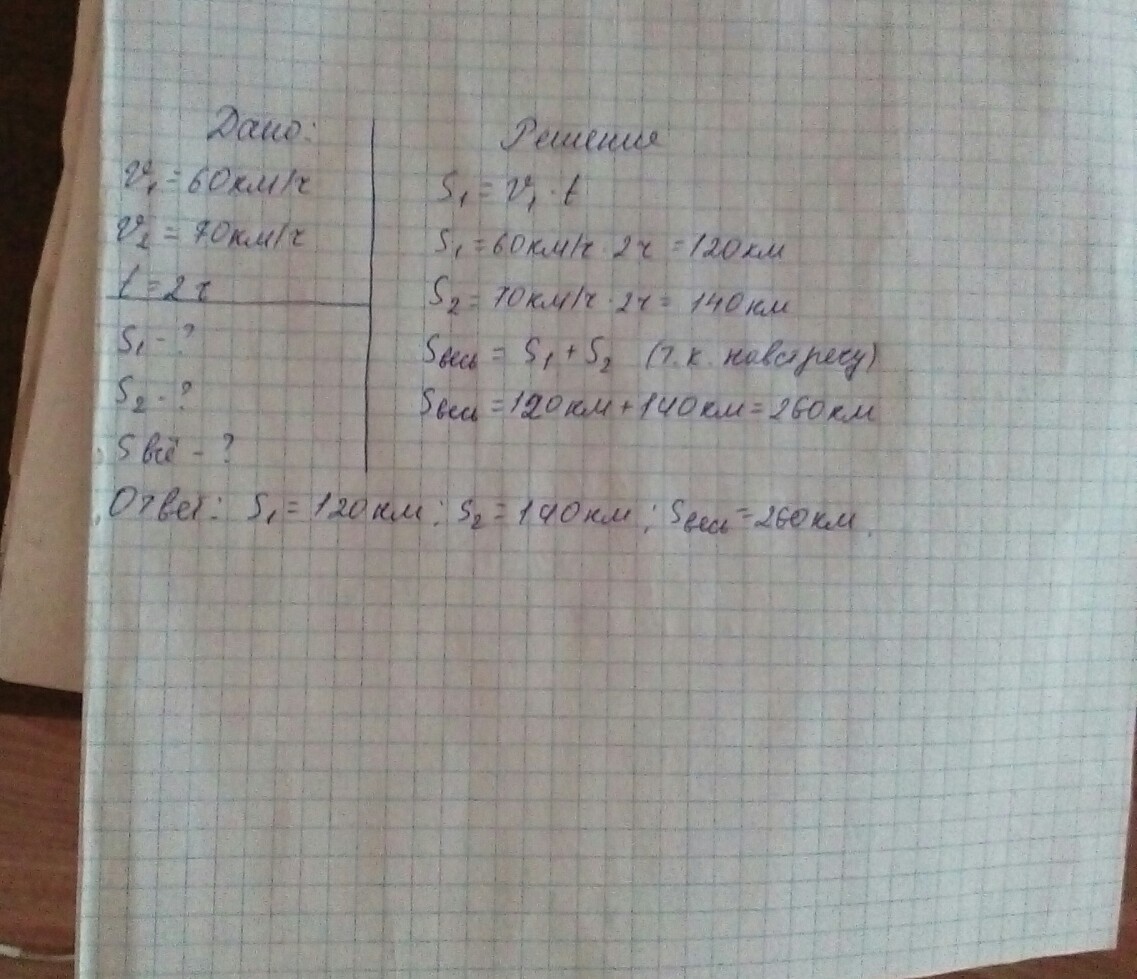 Дано:
v₁ = 60км/ч
v₂ = 70км/ч
t = 2 ч
S₁ - ?
S₂ - ?
S всё - ?
Решения
S₁ = v₁ · t
S₁ = 60км/ч · 2ч = 120км
S₂ = 70км/ч · 2ч = 140км
Sвесь = S₁ + S₂ (т.к. навстречу)
Sвесь = 120км + 140км = 260км
Ответ: S₁ = 120км; S₂ = 140км; Sвесь = 260км.